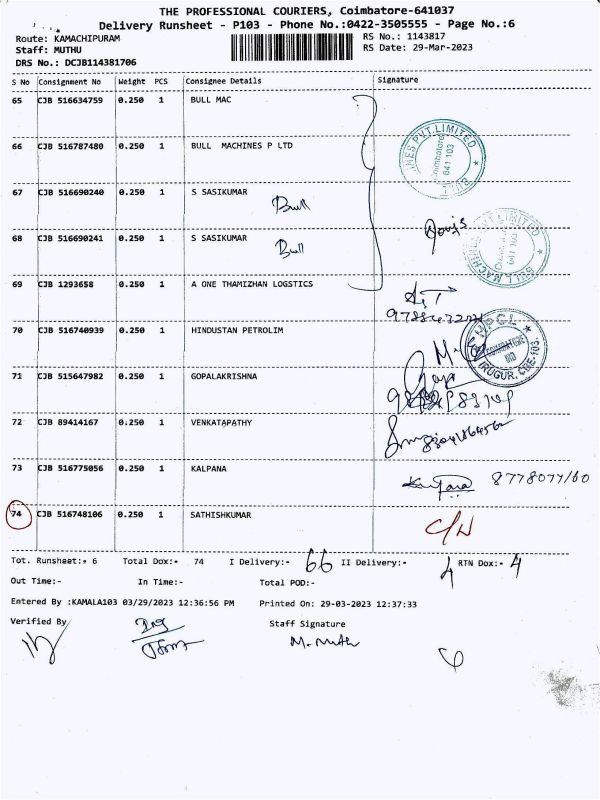 THE PROFESSIONAL COURIERS, Coimbatore-641037
Delivery Runsheet - P103 - Phone No.:0422-3505555 - Page No.:6
Route: KAMACHIPURAM
RS No.: 1143817
Staff: MUTHU
RS Date: 29-Mar-2023
DRS No.: DCJB114381706
S No Consignment No Weight PCS Consignee Details Signature
65 CJB 516634759 0.250 1 BULL MAC
66 CJB 516787480 0.250 1 BULL MACHINES P LTD
67 CJB 516690240 0.250 1 S SASIKUMAR
Bull
68 CJB 516690241 0.250 1 S SASIKUMAR
Bull
69 CJB 1293658 0.250 1 A ONE THAMIZHAN LOGSTICS
70 CJB 516740939 0.250 1 HINDUSTAN PETROLIM
HPCL
COIMBATORE
IRUGUR, CBE-103.
71 CJB 515647982 0.250 1 GOPALAKRISHNA
72 CJB 89414167 0.250 1 VENKATAPATHY
73 CJB 516775056 0.250 1 KALPANA
74 CJB 516748106 0.250 1 SATHISHKUMAR
Tot. Runsheet:- 6 Total Dox:- 74 I Delivery:- 66 II Delivery:- 4 RTN Dox:- 4
Out Time:- In Time:- Total POD:-
Entered By :KAMALA103 03/29/2023 12:36:56 PM Printed On: 29-03-2023 12:37:33
Verified By Staff Signature
M. Muthu